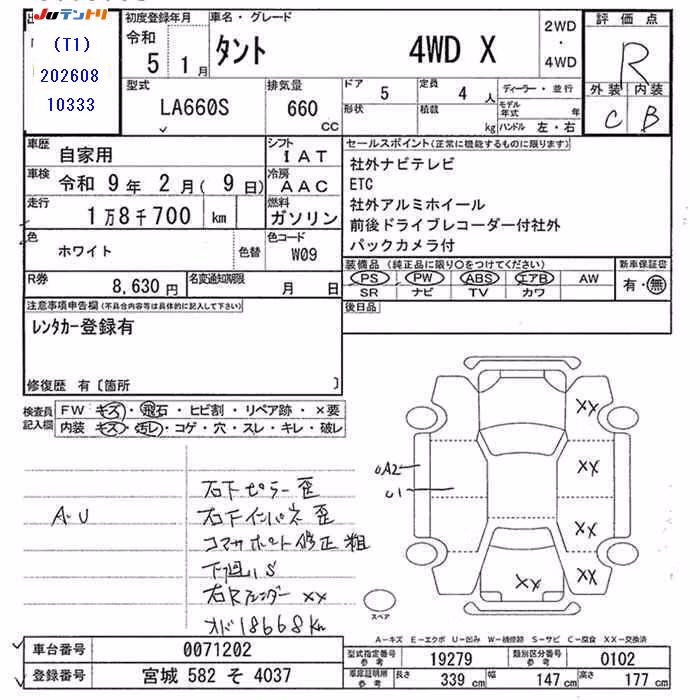 JUテントリ
(T1)
202608
10333
初度登録年月
令和
5 1月
車名・グレード
タント 4WD X
2WD
・
4WD
評価点
R
外装 内装
C B
型式
LA660S
排気量
660 cc
ドア 5
定員 4 人
ディーラー・並行
形状
積載 kg
モデル年式 年
ハンドル 左・右
車歴
自家用
シフト
I AT
車検
令和 9年 2月( 9日)
冷房
AAC
走行
1万8千700 km
燃料
ガソリン
色
ホワイト
色替
色コード
W09
R券
8,630円
名変通知期限
月 日
セールスポイント(正常に機能するものに限ります)
社外ナビテレビ
ETC
社外アルミホイール
前後ドライブレコーダー付社外
バックカメラ付
装備品(純正品に限り○をつけてください)
PS PW ABS エアB AW
SR ナビ TV カワ
新車保証書
有・無
後日品
注意事項申告欄(不具合内容等は具体的に記入して下さい)
レンタカー登録有
修復歴 有〔箇所 〕
検査員
記入欄
FW キズ・飛石・ヒビ割・リペア跡・×要
内装 キズ・汚レ・コゲ・穴・スレ・キレ・破レ
A・U
右下ピラー歪
右下インパネ歪
コアサポート修正粗
下廻りS
右Rフェンダー XX
オド18668Km
XX
XX
XX
XX
XX
UA2
U1
スペア
A−キズ E−エクボ U−凹み W−補修跡 S−サビ C−腐食 XX−交換済
車台番号 0071202
登録番号 宮城 582 そ 4037
型式指定番号
参考
19279
類別区分番号
参考
0102
車庫証明用
参考
長さ 339 cm
幅 147 cm
高さ 177 cm